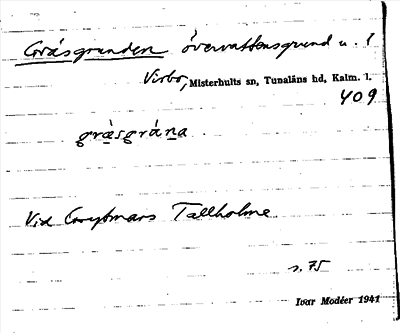 Gräsgrunden övervattensgrund u.
Virbo, Misterhults sn, Tunaläns hd, Kalm. l.
409
gräsgrána
Vid Tallholme
s. 75
Ivar Modéer 1941